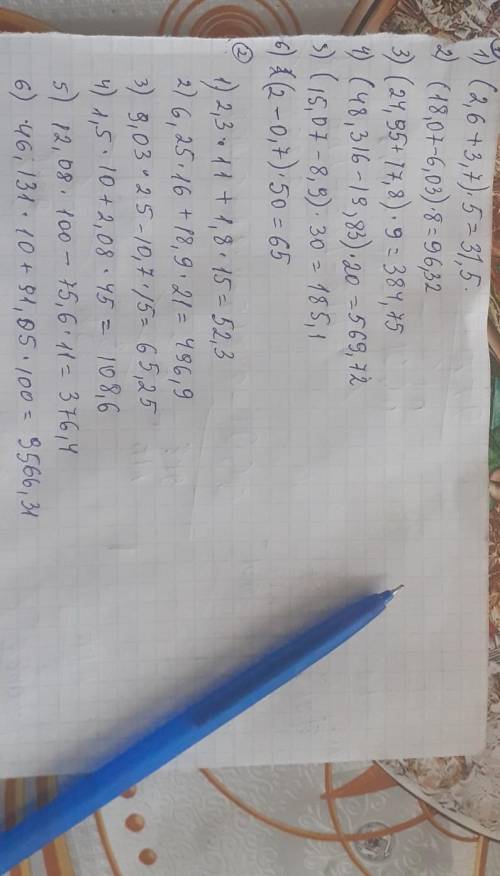 ①
1) (2,6+3,7)·5=31,5
2) (18,0+6,03)8=96,32
3) (24,95+17,8)·9=384,75
4) (48,316-19,83)·20=569,72
5) (15,07-8,9)·30=185,1
6) (2-0,7)·50=65
②
1) 2,3·11+1,8·15=52,3
2) 6,25·16+18,9·21=496,9
3) 9,03·25-10,7·15=65,25
4) 1,5·10+2,08·45=108,6
5) 12,08·100-75,6·11=376,4
6) 46,131·10+91,05·100=9566,31